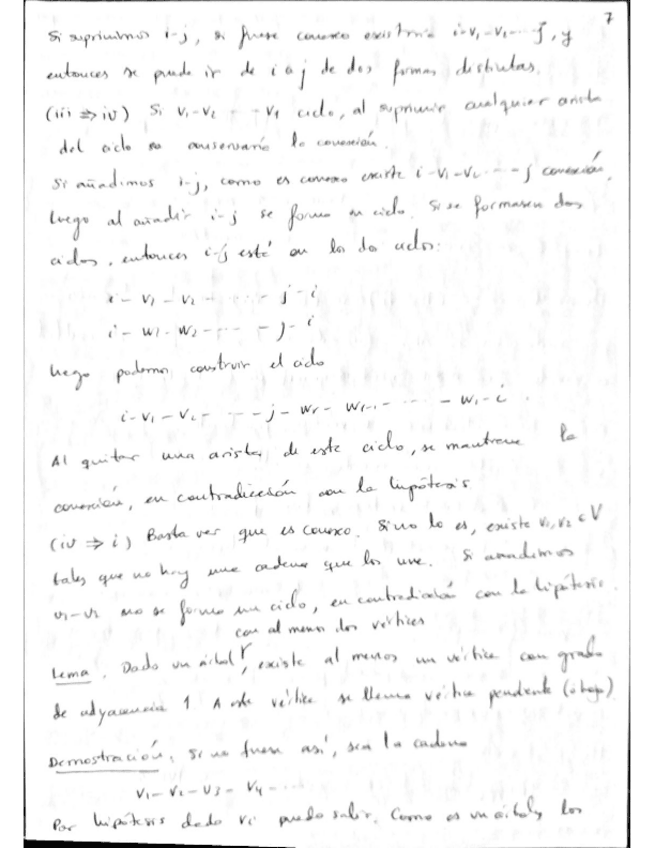 7
Si suprimimos i-j, si fuese conexo existiría i-v₁-v₂-...-j, y
entonces se puede ir de i a j de dos formas distintas.
(iii ⇒ iv) Si v₁-v₂ - - - v₁ ciclo, al suprimir cualquier arista
del ciclo se conservaría la conexión.
Si añadimos i-j, como es conexo existe i-v₁-v₂ - - - j conexión,
luego al añadir i-j se forma un ciclo. Si se formasen dos
ciclos, entonces i-j está en los dos ciclos:
i - v₁ - v₂ - - - - j - i
i - w₁ - w₂ - - - - j - i
luego podemos construir el ciclo
i - v₁ - v₂ - - - - j - wᵣ - wᵣ₋₁ - - - - w₁ - i
Al quitar una arista de este ciclo, se mantiene la
conexión, en contradicción con la hipótesis.
(iv ⇒ i) Basta ver que es conexo. Si no lo es, existe v₁, v₂ ∈ V
tales que no hay una cadena que los une. Si añadimos
v₁-v₂ no se forma un ciclo, en contradicción con la hipótesis.
con al menos dos vértices
Lema. Dado un árbol, existe al menos un vértice con grado
de adyacencia 1. A este vértice se llama vértice pendente (o hoja)
Demostración: Si no fuese así, sea la cadena
v₁ - v₂ - v₃ - v₄ - ...
Por hipótesis dado vᵢ puedo salir. Como es un árbol, los